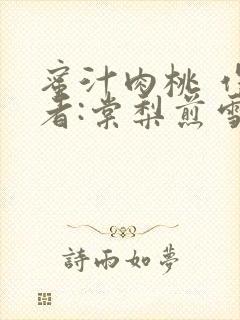 蜜汁肉桃
者:棠梨煎雪
詩雨如夢